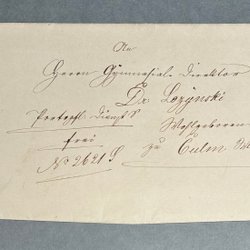 An
Herrn Gymnasial-Direktor
Dr. Łożyński
Portopfl. Dienst S
Wohlgeboren
frei
No 2621 S
zu Culm